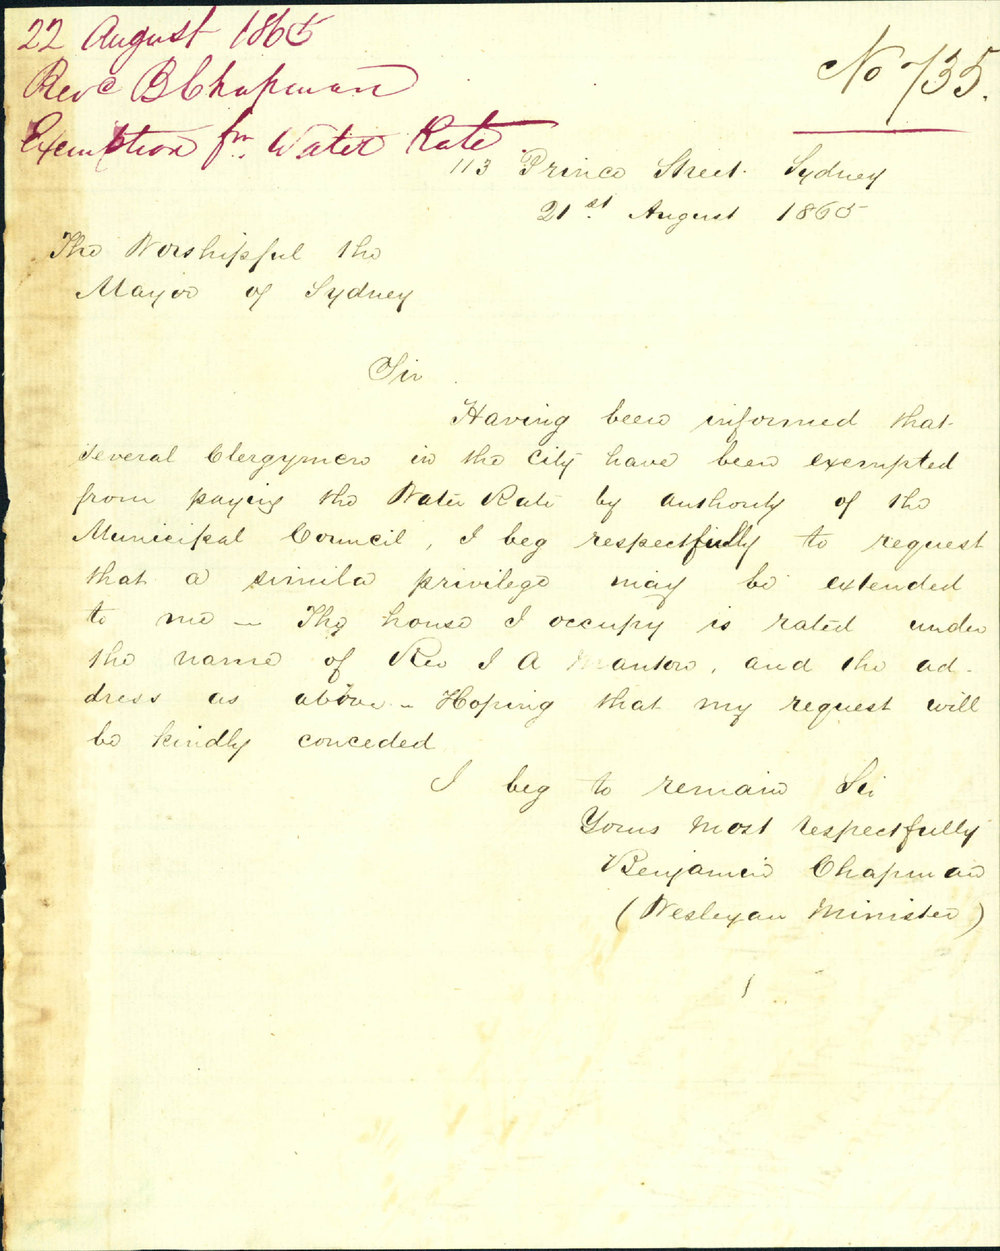 22 August 1865
Revd B Chapman
Exemption fm Water Rate
No 735.
113 Prince Street. Sydney
21st August 1865
The Worshipful the
Mayor of Sydney
Sir
Having been informed that
several Clergymen in the city have been exempted
from paying the Water Rate by authority of the
Municipal Council, I beg respectfully to request
that a similar privilege may be extended
to me — The house I occupy is rated under
the name of Rev J A Manton, and the ad-
dress as above — Hoping that my request will
be kindly conceded
I beg to remain Sir
Yours most respectfully
Benjamin Chapman
(Wesleyan Minister)